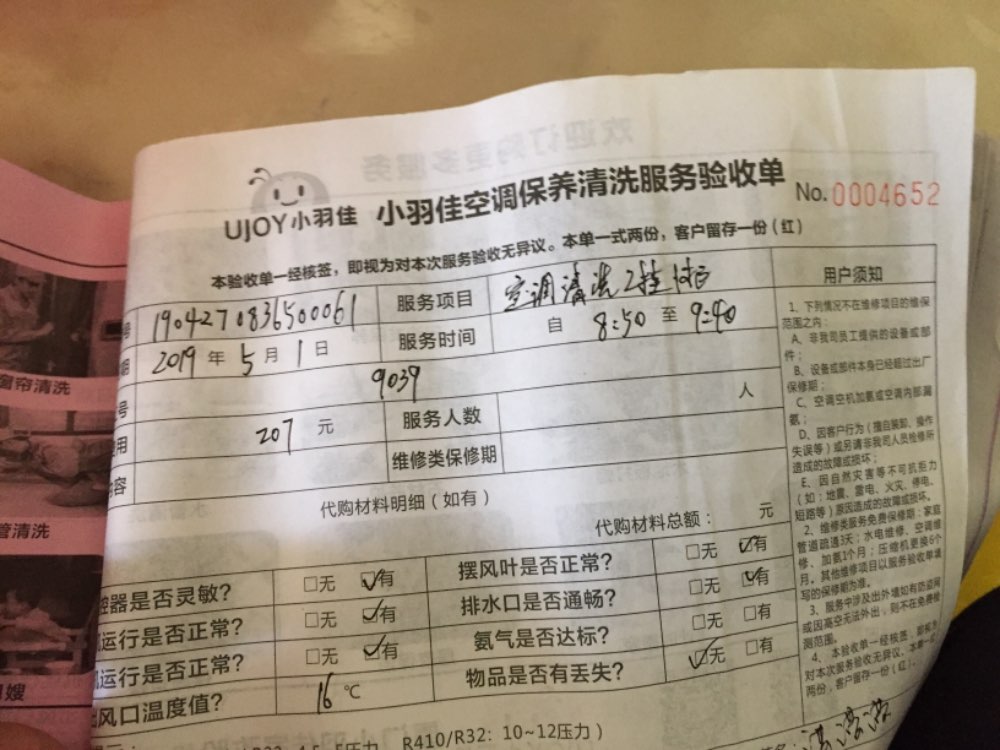 UJOY小羽佳 小羽佳空调保养清洗服务验收单 No.0004652
本验收单一经核签，即视为对本次服务验收无异议。本单一式两份，客户留存一份（红）
号 1904270836500061 服务项目 空调清洗2挂
期 2019年5月1日 服务时间 自 8:50 至 9:40
号 9039
用 207 元 服务人数 人
容 维修类保修期
代购材料明细（如有）
代购材料总额： 元
控器是否灵敏？ □无 ☑有 摆风叶是否正常？ □无 ☑有
运行是否正常？ □无 ☑有 排水口是否通畅？ □无 ☑有
运行是否正常？ □无 ☑有 氨气是否达标？ □无 □有
风口温度值？ 16 ℃ 物品是否有丢失？ ☑无 □有
R410/R32：10~12压力）
用户须知
1、下列情况不在维修项目的维保
范围之内：
A、非我司员工提供的设备或部
件；
B、设备或部件本身已经超过出厂
保修期；
C、空调空机加氨或空调内部漏
氨；
D、因客户行为（擅自装卸、操作
失误等）或另请非我司人员检修所
造成的故障或损坏；
E、因自然灾害等不可抗拒力
（如：地震、雷电、火灾、停电、
短路等）原因造成的故障或损坏。
2、维修类服务免费保修期：家庭
管道疏通3天；水电维修、空调维
修、加氨1个月；压缩机更换6个
月。其他维修项目以服务验收单填
写的保修期为准。
3、服务中涉及出外墙如有防盗网
或因高空无法外出，则不在免费检
测范围。
4、本验收单一经核签，即视为
对本次服务验收无异议。本单一式
两份，客户留存一份（红）。
窗帘清洗
管清洗
嫂